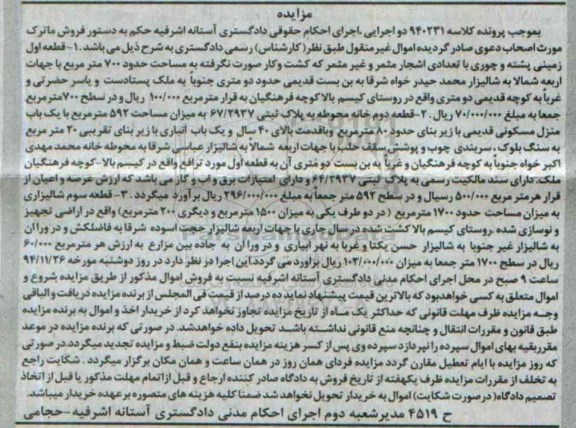 مزایده
بموجب پرونده کلاسه ۹۴۰۲۳۱ دو اجرایی ،اجرای احکام حقوقی دادگستری آستانه اشرفیه حکم به دستور فروش ماترک
مورث اصحاب دعوی صادر گردیده اموال غیر منقول طبق نظر (کارشناس) رسمی دادگستری به شرح ذیل می باشد. ۱-قطعه اول
زمینی پشته و چوری با تعدادی اشجار مثمر و غیر مثمر که کشت وکار صورت نگرفته به مساحت حدود ۷۰۰ متر مربع با جهات
اربعه شمالا به شالیزار محمد حیدر خواه شرقا به بن بست قدیمی حدود دو متری جنوباً به ملک پستادست و یاسر حضرتی و
غرباً به کوچه قدیمی دو متری واقع در روستای کیسم بالا کوچه فرهنگیان به قرار مترمربع ۱۰۰/۰۰۰ ریال و در سطح ۷۰۰مترمربع
جمعا به مبلغ ۷۰/۰۰۰/۰۰۰ ریال. ۲-قطعه دوم خانه محوطه به پلاک ثبتی ۶۷/۲۹۳۷ به میزان مساحت ۵۹۲ مترمربع با یک باب
منزل مسکونی قدیمی با زیر بنای حدود ۸۰ مترمربع وباقدمت بالای ۴۰ سال و یک باب انباری با زیر بنای تقریبی ۲۰ متر مربع
به سنگ بلوک ، سربندی چوب و پوششی سقف حلب با جهات اربعه شمالا به شالیزار عباسی شرقا به محوطه خانه محمد مهدی
اکبر خواه جنوباً به کوچه فرهنگیان و غرباً به بن بست دو متری آن به قطعه اول مورد ترافع واقع در کیسم بالا-کوچه فرهنگیان
ملک دارای سند مالکیت رسمی به پلاک ثبتی ۶۴/۲۹۳۷ و دارای امتیازات برق و اب و گاز می باشد که ارزش عرصه و اعیان از
قرار هر متر مربع ۵۰۰/۰۰۰ رسیال و در سطح ۵۹۲ متر جمعاً به مبلغ ۲۹۶/۰۰۰/۰۰۰ ریال برآورد میگردد .۳-قطعه سوم شالیزاری
به میزان مساحت حدود ۱۷۰۰ مترمربع ( در دو طرف یکی به میزان ۱۵۰۰ مترمربع و دیگری ۲۰۰ مترمربع) واقع در اراضی تجهیز
و نوسازی شده .روستای کیسم بالا کشت شده در سال جاری با جهات اربعه شالیزار حجت اسوده شرقا به فاضلکش و در ورا آن
به شالیزار غیر جنوبا به شالیزار حسن یکتا و غربا به نهر ابیاری و در ورا ان به جاده بین مزارع به ارزش هر مترمربع ۶۰/۰۰۰
ریال در سطح ۱۷۰۰ متر جمعا به میزان ۱۰۲/۰۰۰/۰۰۰ ریال برآورد می گردد،این اجرا در نظر دارد در روز دوشنبه مورخه ۹۴/۱۱/۲۶
ساعت ۹ صبح در محل اجرای احکام مدنی دادگستری آستانه اشرفیه نسبت به فروش اموال مذکور از طریق مزایده شروع و
اموال متعلق به کسی خواهد بود که بالاترین قیمت پیشنهاد نماید ده درصد از قیمت فی المجلس از برنده مزایده دریافت و الباقی
وجه مزایده ظرف مهلت قانونی که حداکثر یک ماه از تاریخ مزایده تجاوز نخواهد کرد از خریدار اخذ و اموال به برنده مزایده
طبق قانون و مقررات انتقال و چنانچه منع قانونی نداشته باشد تحویل داده خواهدشد. در صورتی که برنده مزایده در موعد
مقرر بقیه بهای اموال سپرده را نپردازد سپرده وی پس از کسر هزینه مزایده بنفع دولت ضبط و مزایده تجدید میگردد.در صورتی
که روز مزایده با ایام تعطیل مقارن گردد مزایده فردای همان روز در همان ساعت و همان مکان برگزار میگردد . شکایت راجع
به تخلف از مقررات مزایده ظرف یکهفته از تاریخ فروش به دادگاه صادر کننده ارجاع و قبل از اتمام مهلت مذکور یا قبل از اتخاذ
تصمیم دادگاه (درصورت شکایت) اموال به خریدار تحویل نخواهد شد ضمنا کلیه هزینه های متصوره بر عهده خریدار میباشد.
ح ۴۵۱۹ مدیر شعبه دوم اجرای احکام مدنی دادگستری آستانه اشرفیه-حجامی